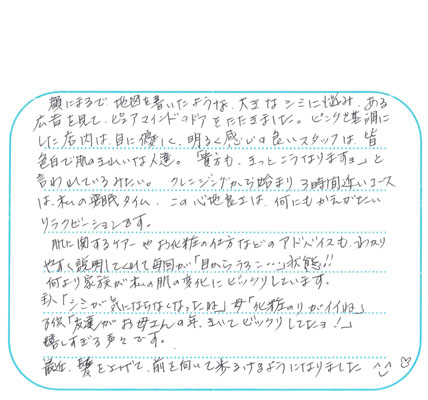 顔にまるで、地図を書いたような、大きなシミに悩み、ある
広告を見て、ピュアマインドのドアをたたきました。ピンクを基調に
した店内は、目に優しく、明るく感じの良いスタッフは、皆
色白で肌のキレイな人達。「貴方も、きっとこうなりますョ」と
言われているみたい。クレンジングから始まり、3時間近いコース
は、私の睡眠タイム、この心地良さは、何にもかえがたい
リラクゼーションです。
肌に関するケアーやお化粧の仕方などのアドバイスも、わかり
やすく説明してくれて毎回が「目からうろこ…」状態!!
何より家族が私の肌の変化にビックリしています。
主人「シミが気にならなくなったね」母「化粧のりがイイね」
子供「友達がお母さんの年、きいてビックリしてたョ!」
嬉しすぎる声々です。
最近、髪を上げて、前を向いて歩るけるようになりました ^^ ♡